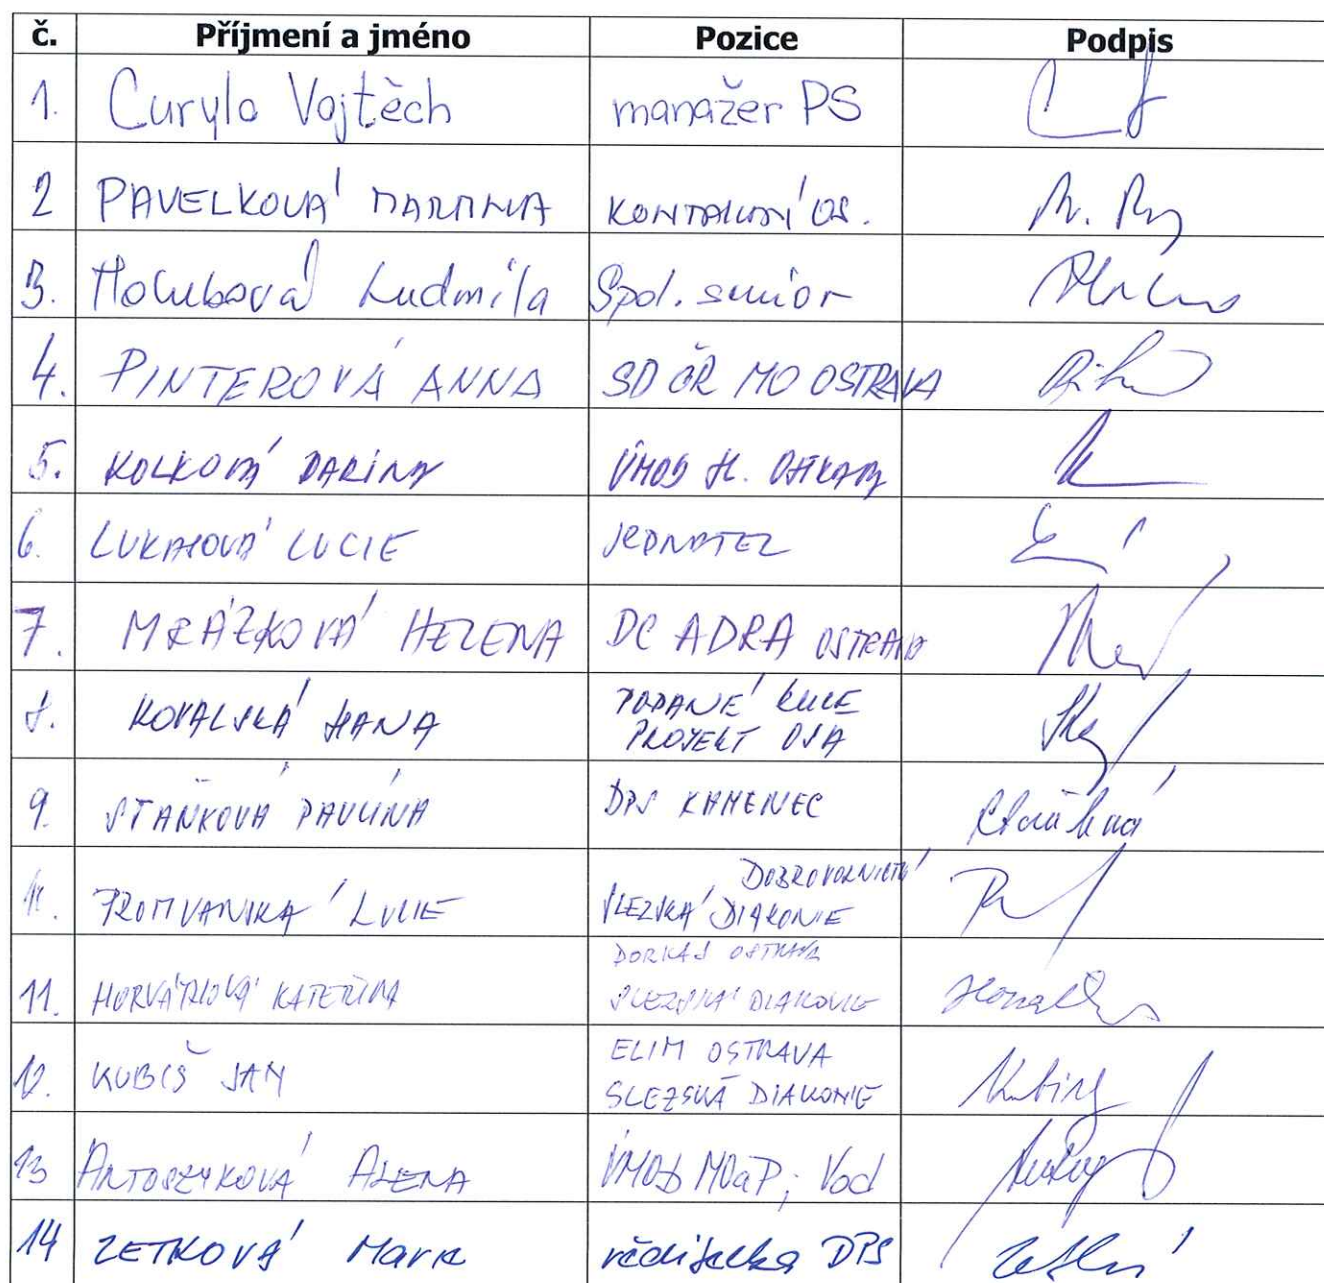 č. Příjmení a jméno Pozice Podpis
1. Curylo Vojtěch manažer PS
2 PAVELKOVÁ MARTINA KONTAKTNÍ OS.
3. Holubová Ludmila Spol. senior
4. PINTEROVÁ ANNA SD ČR MO OSTRAVA
5. KOLKOVÁ DARINA ÚMOb
6. LUCIE JEDNATEL
7. MRÁZKOVÁ HELENA DC ADRA OSTRAVA
8. KOVALSKÁ HANA PODANÉ RUCE
PROJEKT OSA
9. STAŇKOVÁ PAVLÍNA DPS KAMENEC
DOBROVOLNICTVÍ
LUCIE SLEZSKÁ DIAKONIE
DORKAS OSTRAVA
11. HORVÁTHOVÁ KATEŘINA SLEZSKÁ DIAKONIE
ELIM OSTRAVA
12. KUBIŠ JAN SLEZSKÁ DIAKONIE
13 ANTOSZYKOVÁ ALENA ÚMOb MOaP; Vod
14 ZETKOVÁ Marie ředitelka DPS